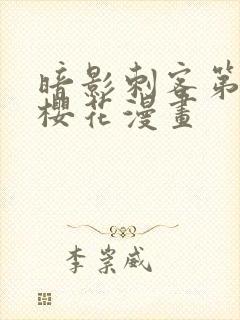 暗影刺客第
櫻花漫畫
李崇威